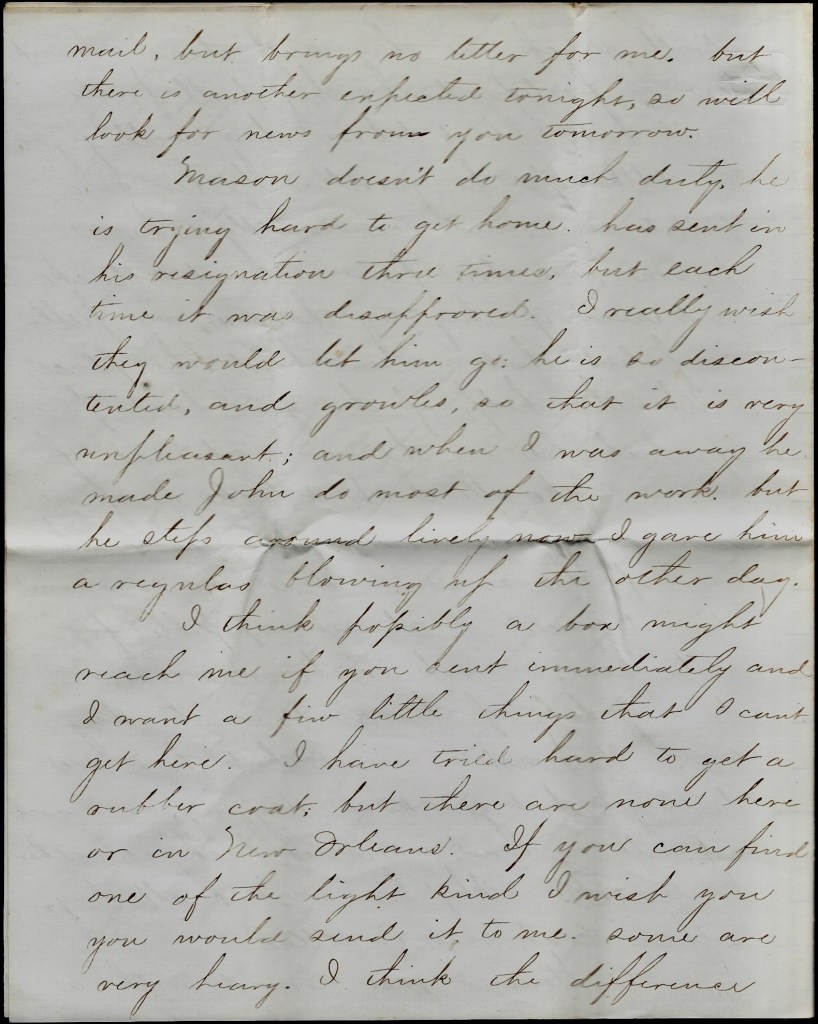 mail, but brings no letter for me. but
there is another expected tonight, so will
look for news from you tomorrow.
Mason doesn't do much duty, he
is trying hard to get home. has sent in
his resignation three times, but each
time it was disapproved. I really wish
they would let him go: he is so discon-
tented, and growles, so that it is very
unpleasant; and when I was away he
made John do most of the work. but
he steps around lively now I gave him
a regular blowing up the other day.
I think possibly a box might
reach me if you sent immediately and
I want a few little things that I can't
get here. I have tried hard to get a
rubber coat; but there are none here
or in New Orleans. If you can find
one of the light kind I wish you
you would send it to me. some are
very heavy. I think the difference